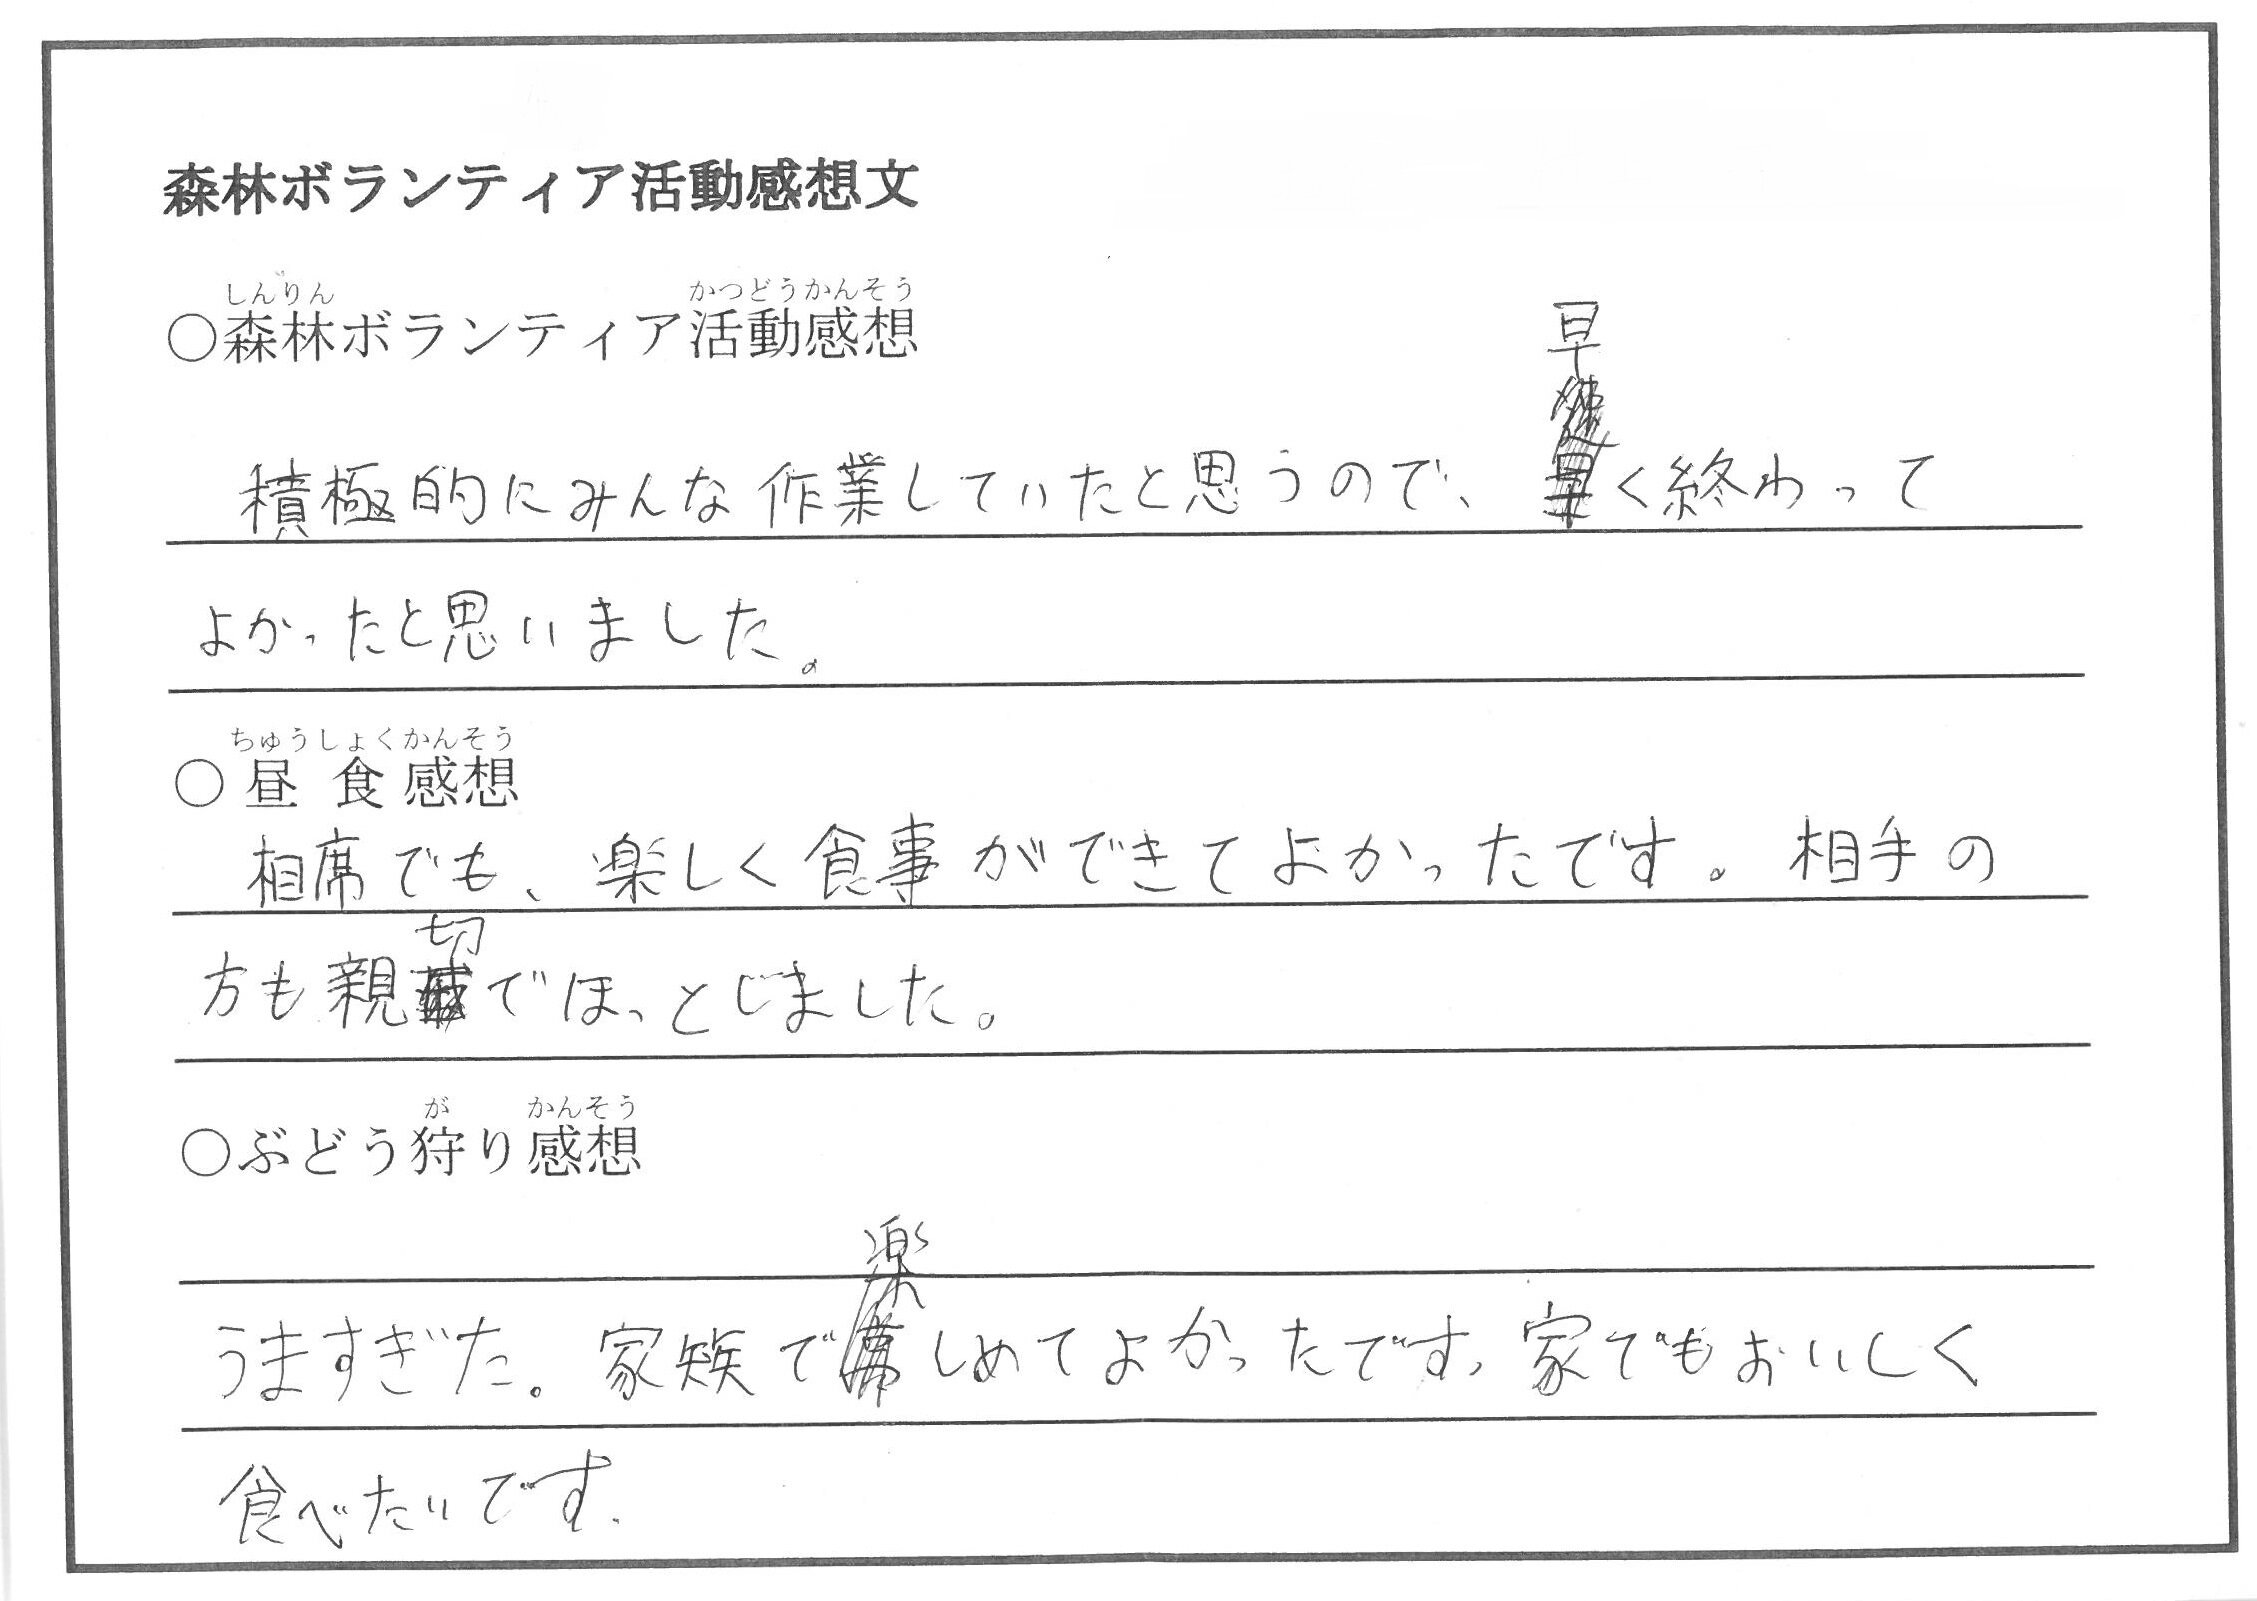 森林ボランティア活動感想文
しんりん かつどうかんそう
○森林ボランティア活動感想
積極的にみんな作業していたと思うので、早く終わって
よかったと思いました。
ちゅうしょくかんそう
○昼食感想
相席でも、楽しく食事ができてよかったです。相手の
方も親切でほっとしました。
が かんそう
○ぶどう狩り感想
うますぎた。家族で楽しめてよかったです。家でもおいしく
食べたいです.